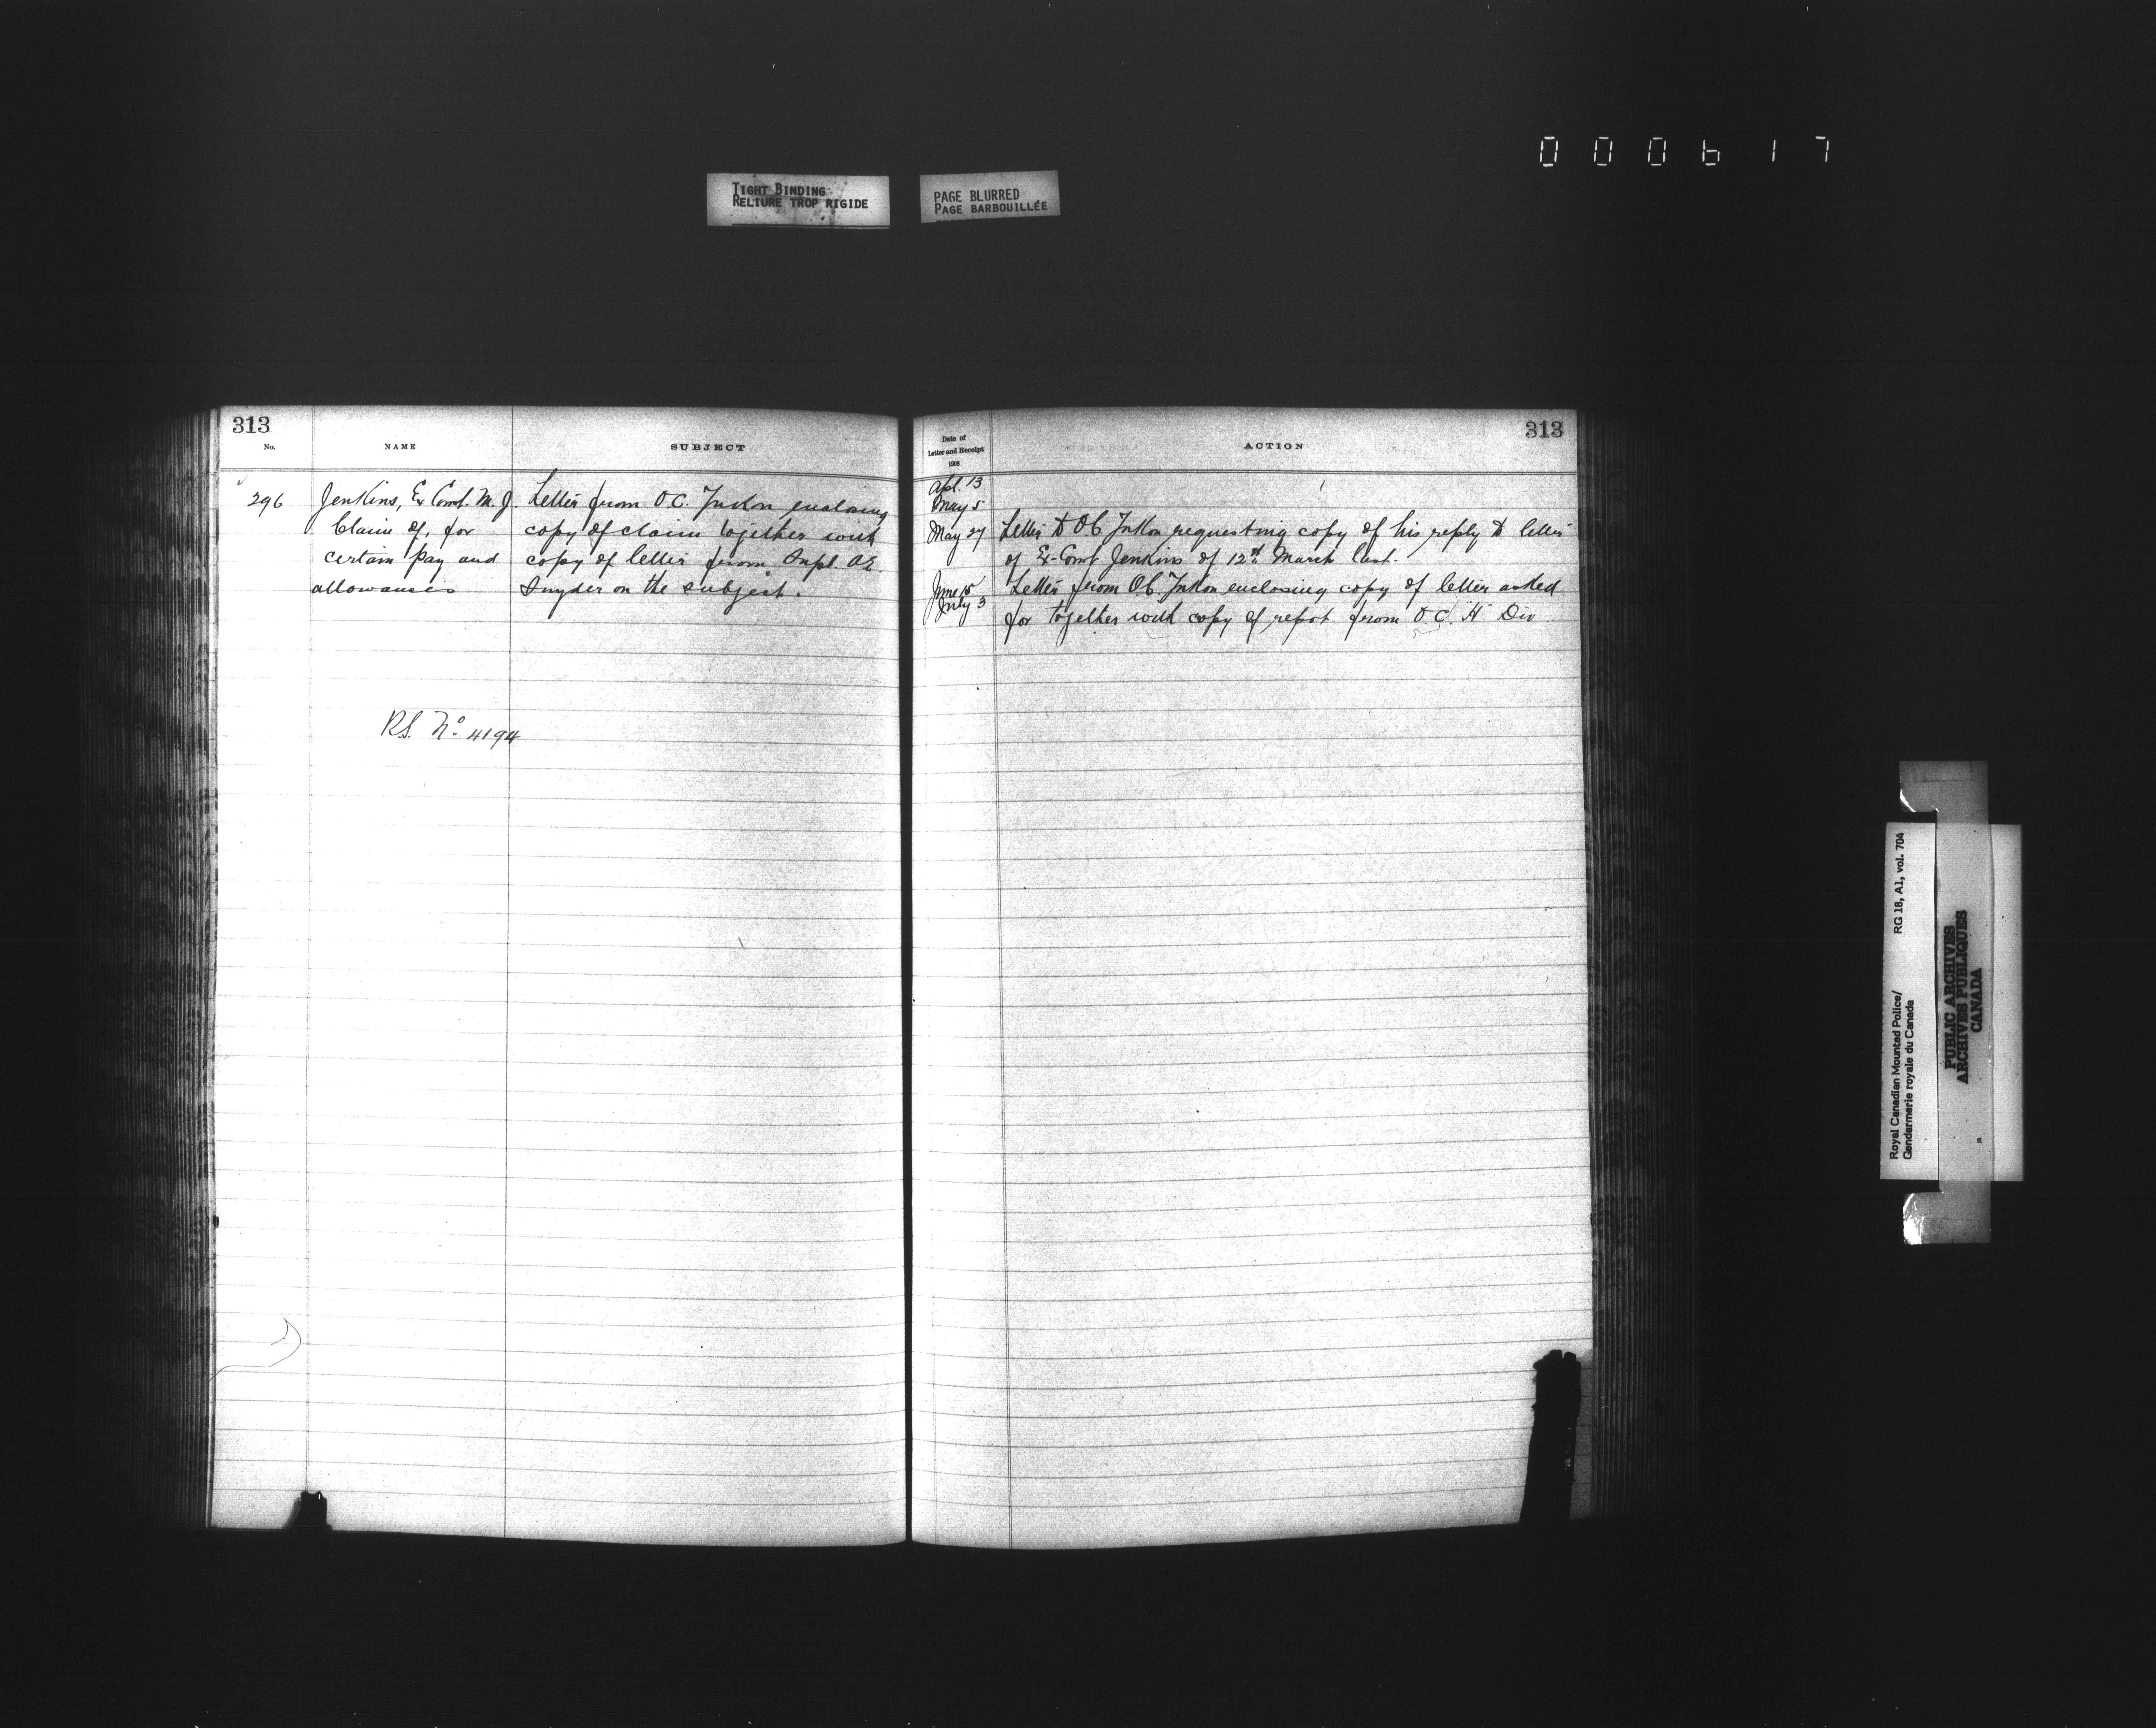 000617
TIGHT BINDING
RELIURE TROP RIGIDE
PAGE BLURRED
PAGE BARBOUILLÉE
313
No.
NAME
SUBJECT
296
Jenkins, Ex Const. M. J.
Claim of, for
certain pay and
allowances
Letter from O.C. Yukon enclosing
copy of claim together with
copy of letter from Inspt. A.E.
Snyder on the subject.
R.S. No. 4194
313
Date of
Letter and Receipt
1908
ACTION
Apl. 13
May 5
May 27
Letter to O.C. Yukon requesting copy of his reply to letter
of Ex-Const Jenkins of 12th March last.
June 15
July 3
Letter from O.C. Yukon enclosing copy of letter asked
for together with copy of report from O.C. "H" Div
Royal Canadian Mounted Police/
Gendarmerie royale du Canada
RG 18, A1, vol. 704
PUBLIC ARCHIVES
ARCHIVES PUBLIQUES
CANADA